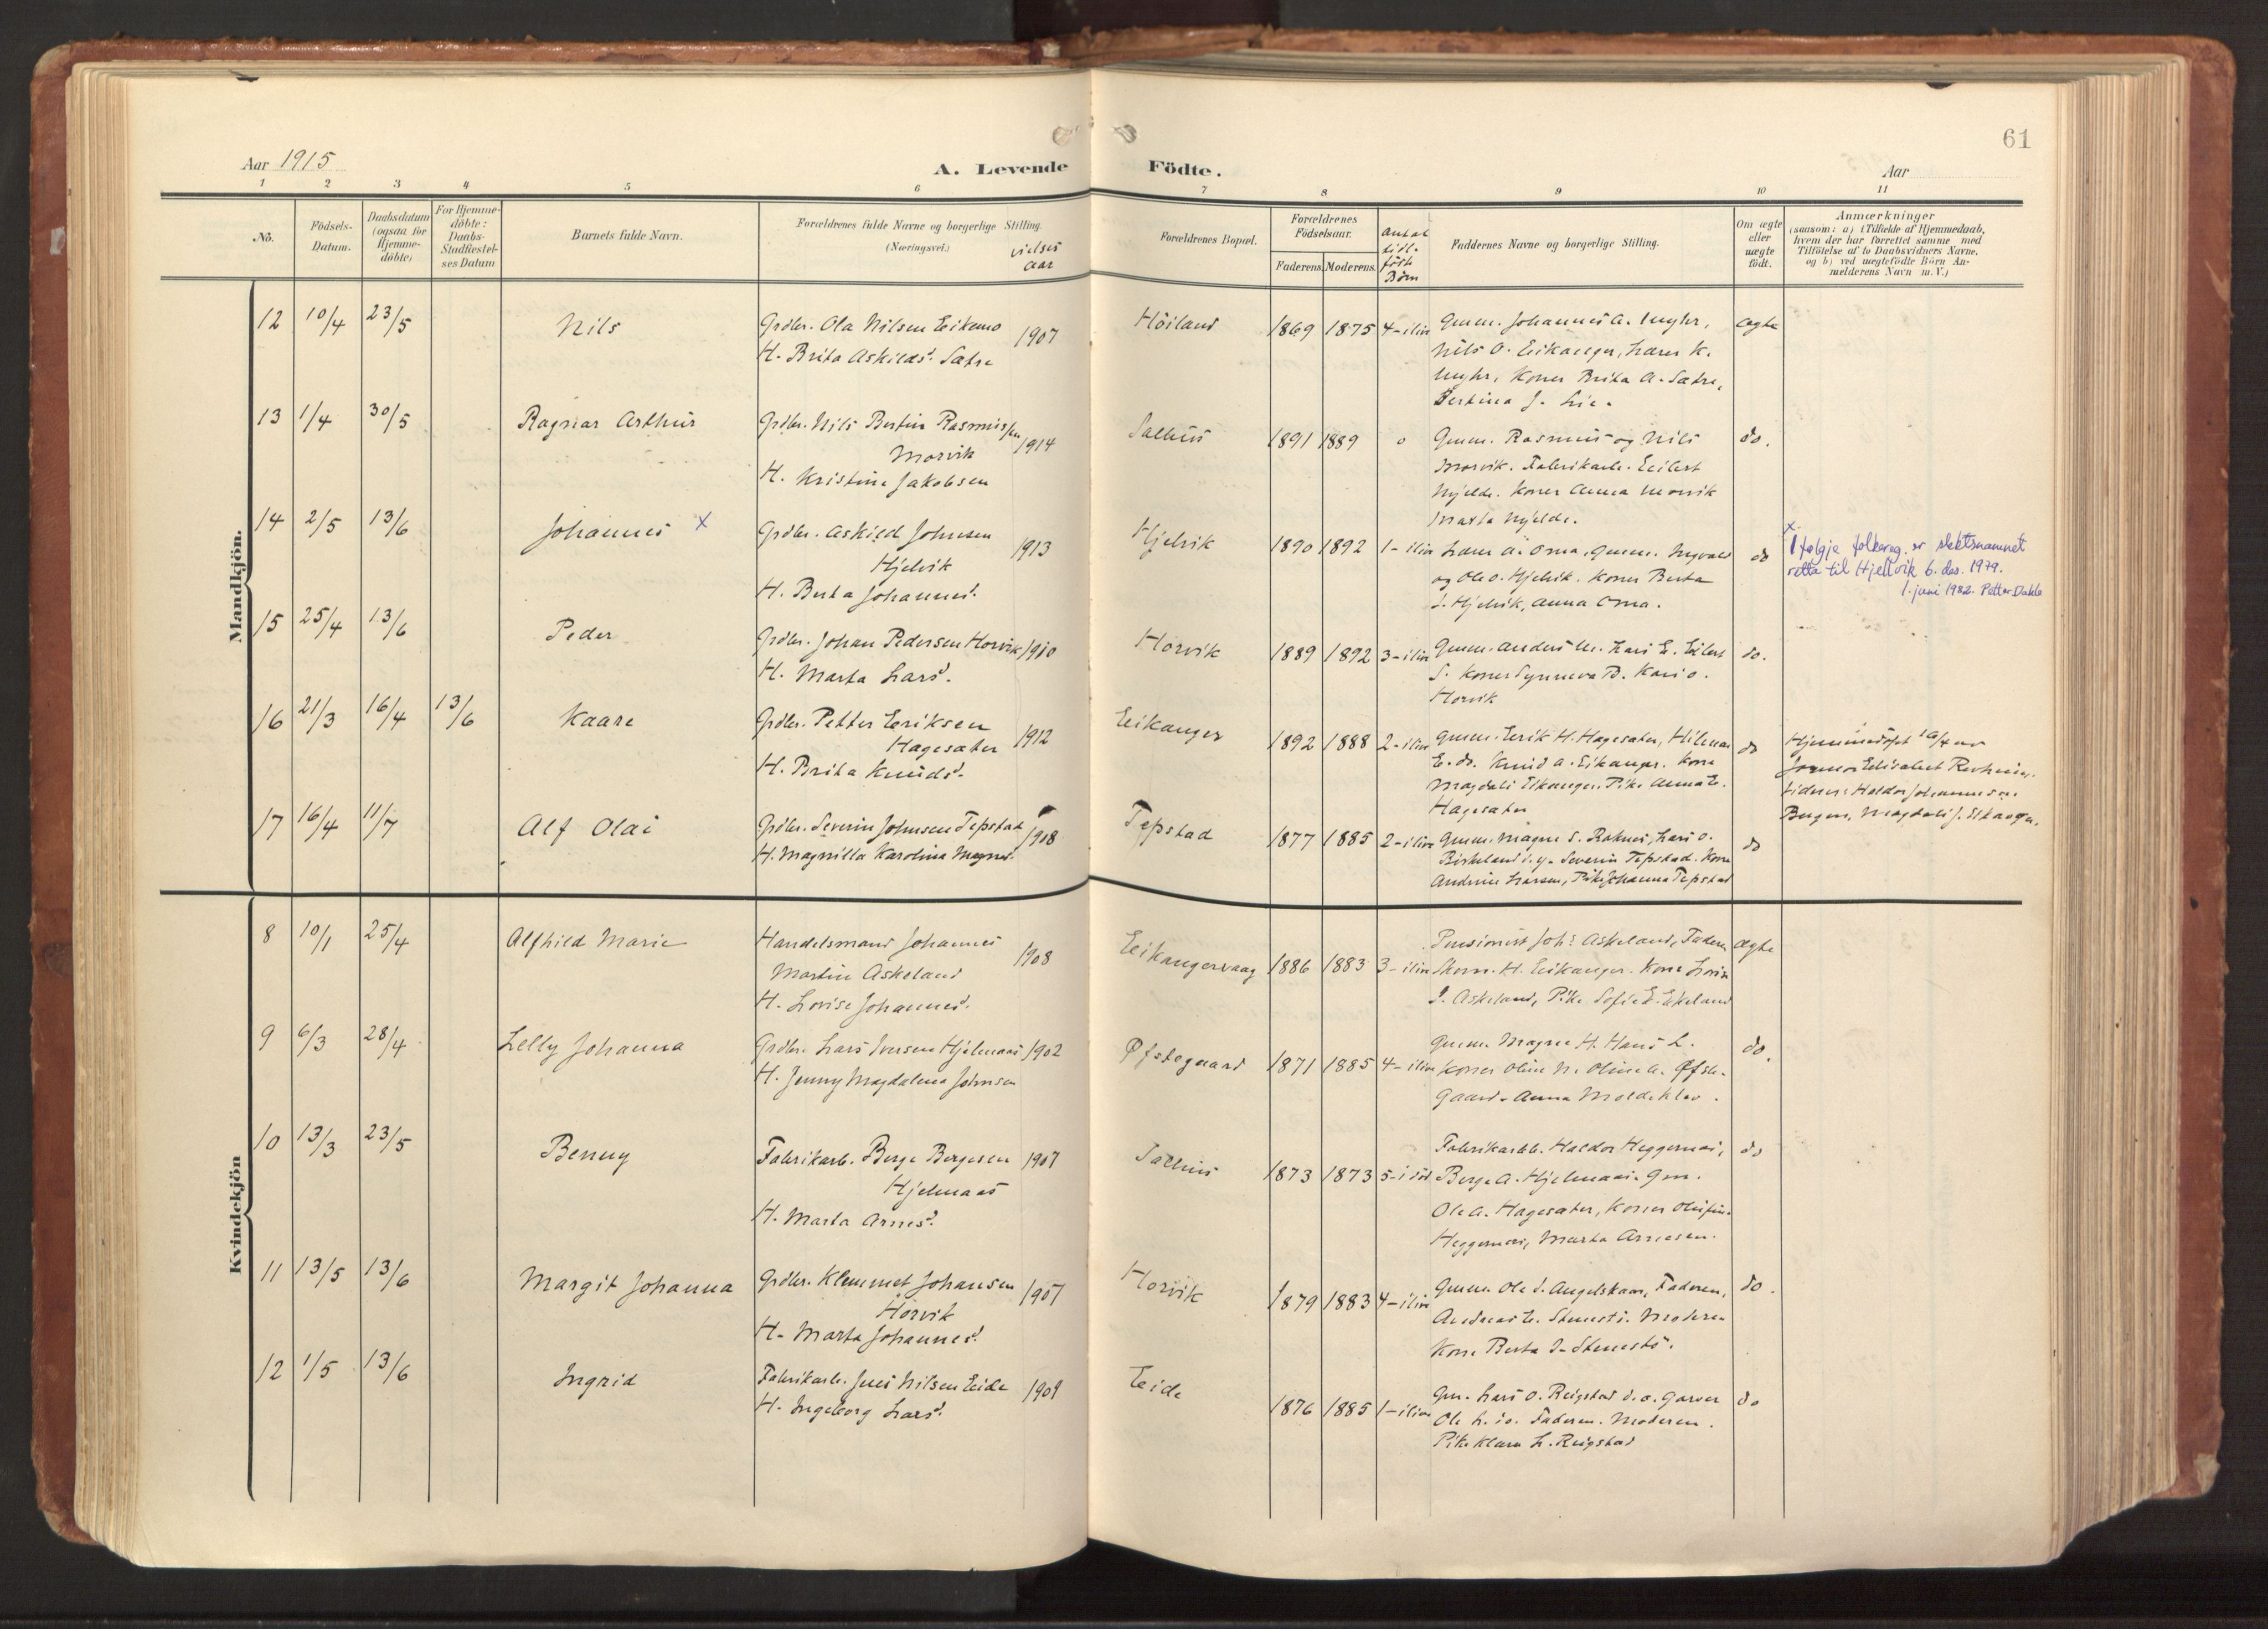 61
Aar 1915
A. Levende Födte.
Aar
1 2 3 4 5 6 7 8 9 10 11
No.
Födsels-
Datum.
Daabsdatum
(ogsaa for
Hjemme-
döbte)
For Hjemme-
döbte:
Daabs-
Stadfæstel-
ses Datum
Barnets fulde Navn.
Forældrenes fulde Navne og borgerlige Stilling.
(Næringsvei.)
vielses
aar
Forældrenes Bopæl.
Forældrenes
Födselsaar.
Faderens. Moderens.
Antal
tidl.
födte
Börn
Faddernes Navne og borgerlige Stilling.
Om ægte
eller
uægte
födt.
Anmærkninger
(saasom: a) i Tilfælde af Hjemmedaab,
hvem der har forrettet samme med
Tilföielse af to Daabsvidners Navne,
og b) ved uegtefödte Börn An-
melderens Navn m. V.)
Mandkjön.
12 10/4 23/5 Nils
Grdbr. Ola Nilsen Eikemo
H. Brita Askildsd. Sætre
1907
Höiland 1869 1875 4-ilive
Gmm. Johannes A.
Nils O. Eikanger, Lærer K.
Koner Brita A. Sætre,
Bertina J. Lie.
ægte
13 1/4 30/5 Ragnar Arthur
Grdbr. Nils Bertin Rasmussen
Morvik
H. Kristine Jakobsen
1914
Salhus 1891 1889 0
Gmm. Rasmus og Nils
Morvik. Fabrikarb. Eilert
Koner Anna Morvik
Marta
do.
14 2/5 13/6 Johannes x
Grdbr. Askild Johnsen
Hjelvik
H. Berta Johannesd.
1913
Hjelvik 1890 1892 1-ilive
Lars A. Oma. Gmm. Ingvald
og Ole O. Hjelvik. Koner Berta
J. Hjelvik, Anna Oma.
do
x
Ifølgje folkereg. er slektsnamnet
retta til Hjellvik 6. des. 1979.
1. juni 1982. Petter Dahle
15 25/4 13/6 Peder
Grdbr. Johan Pedersen Horvik
H. Marta Larsd.
1910
Horvik 1889 1892 3-ilive
Gmm. Anders M. Lars E. Eilert
S. Koner Synneva B. Kari O.
Horvik
do.
16 21/3 16/4 13/6 Kaare
Grdbr. Petter Eriksen
Hagesæter
H. Brita Knudsd.
1912
Eikanger 1892 1888 2-ilive
Gmm. Eerik H. Hagesæter, Hilmar
E. do. Knud A. Eikanger. Kone
Magdali Eikanger. Pike Anna E.
Hagesæter
do
Hjemmedöpt 16/4 av
Jormor Elisabet
Haldor Johannesen
Bergen, Magdali J. Eikanger.
17 16/4 11/7 Alf Olai
Grdbr. Severin Johnsen Tepstad
H. Magnilla Karolina Magnesd.
1908
Tepstad 1877 1885 2-ilive
Gmm. Magne S. Raknes, Lars O.
Birkeland i. y. Severin Tepstad. Kone
Andrine Larsen, Pike Johanna Tepstad
do
Kvindekjön
8 10/1 25/4 Alfhild Marie
Handelsmand Johannes
Martin Askeland
H. Lovise Johannesd.
1908
Eikangervaag 1886 1883 3-ilive
Pensionist Johs. Askeland, Faderen
H. Eikanger. Kone Lovise
J. Askeland, Pike Sofie E. Ekeland
ægte
9 6/3 28/4 Lelly Johanna
Grdbr. Lars Iversen Hjelmaas
H. Jenny Magdalena Johnsen
1902
Øfstegaard 1871 1885 4-ilive
Gmm. Magne H. Hans L.
Koner Oline N. Oline A. Øfste-
gaard. Anna Moldeklev.
do.
10 13/3 23/5 Benny
Fabrikarb. Berge Bergesen
Hjelmaas
H. Marta Arnesd.
1907
Salhus 1873 1873 5-1 död
Fabrikarbb. Haldor Heggernæs,
Berge A. Hjelmaas. Gm.
Ole A. Hagesæter, Koner
Heggernæs, Marta Arnesen.
do
11 13/5 13/6 Margit Johanna
Grdbr. Klemmet Johansen
Horvik
H. Marta Johannesd.
1907
Horvik 1879 1883 4-ilive
Gmm. Ole J. Angelskaar, Faderen,
Andreas E. Stenestö. Moderen
Kone Berta J. Stenestö.
do.
12 1/5 13/6 Ingrid
Fabrikarb. Jens Nilsen Eide
H. Ingeborg Larsd.
1909
Eide 1876 1885 1-ilive
Gm. Lars O. Reigstad d. o. Garver
Ole L. do. Faderen. Moderen.
Pike Klara L. Reigstad
do